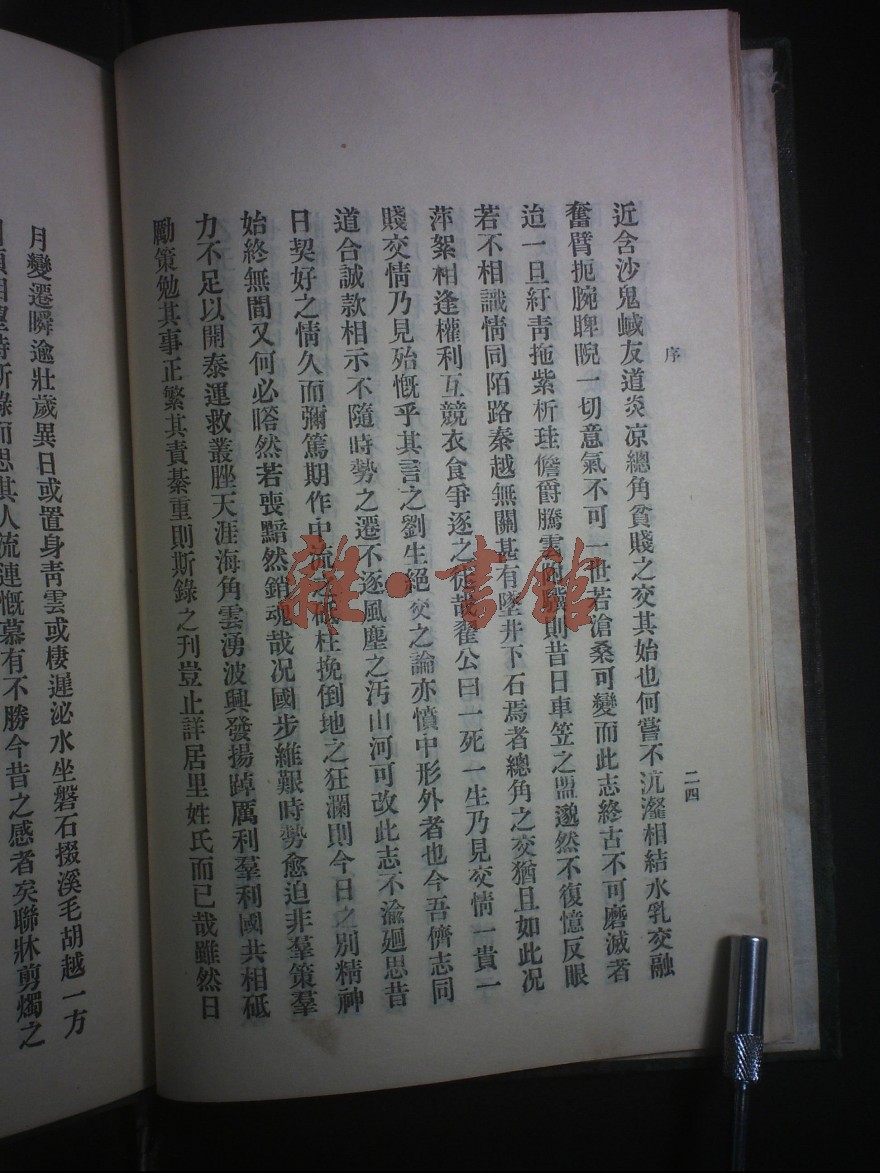 序
二四
近含沙鬼蜮友道炎凉總角貧賤之交其始也何嘗不沆瀣相結水乳交融
奮臂扼腕睥睨一切意氣不可一世若滄桑可變而此志終古不可磨滅者
迨一旦紆青拖紫析珪儋爵騰雲則昔日車笠之盟邈然不復憶反眼
若不相識情同陌路秦越無關甚有墜井下石焉者總角之交猶且如此况
萍絮相逢權利互競衣食爭逐之徒哉翟公曰一死一生乃見交情一貴一
賤交情乃見殆慨乎其言之劉生絕交之論亦憤中形外者也今吾儕志同
道合誠款相示不隨時勢之遷不逐風塵之汚山河可改此志不渝廻思昔
日契好之情久而彌篤期作中流之砥柱挽倒地之狂瀾則今日之別精神
始終無間又何必嗒然若喪黯然銷魂哉况國步維艱時勢愈迫非羣策羣
力不足以開泰運救叢脞天涯海角雲湧波興發揚踔厲利羣利國共相砥
勵策勉其事正繁其責綦重則斯錄之刊豈止詳居里姓氏而已哉雖然日
月變遷瞬逾壯歲異日或置身青雲或棲遲泌水坐磐石掇溪毛胡越一方
相望時斯錄而思其人流連慨慕有不勝今昔之感者矣聯牀剪燭之
雜·書館